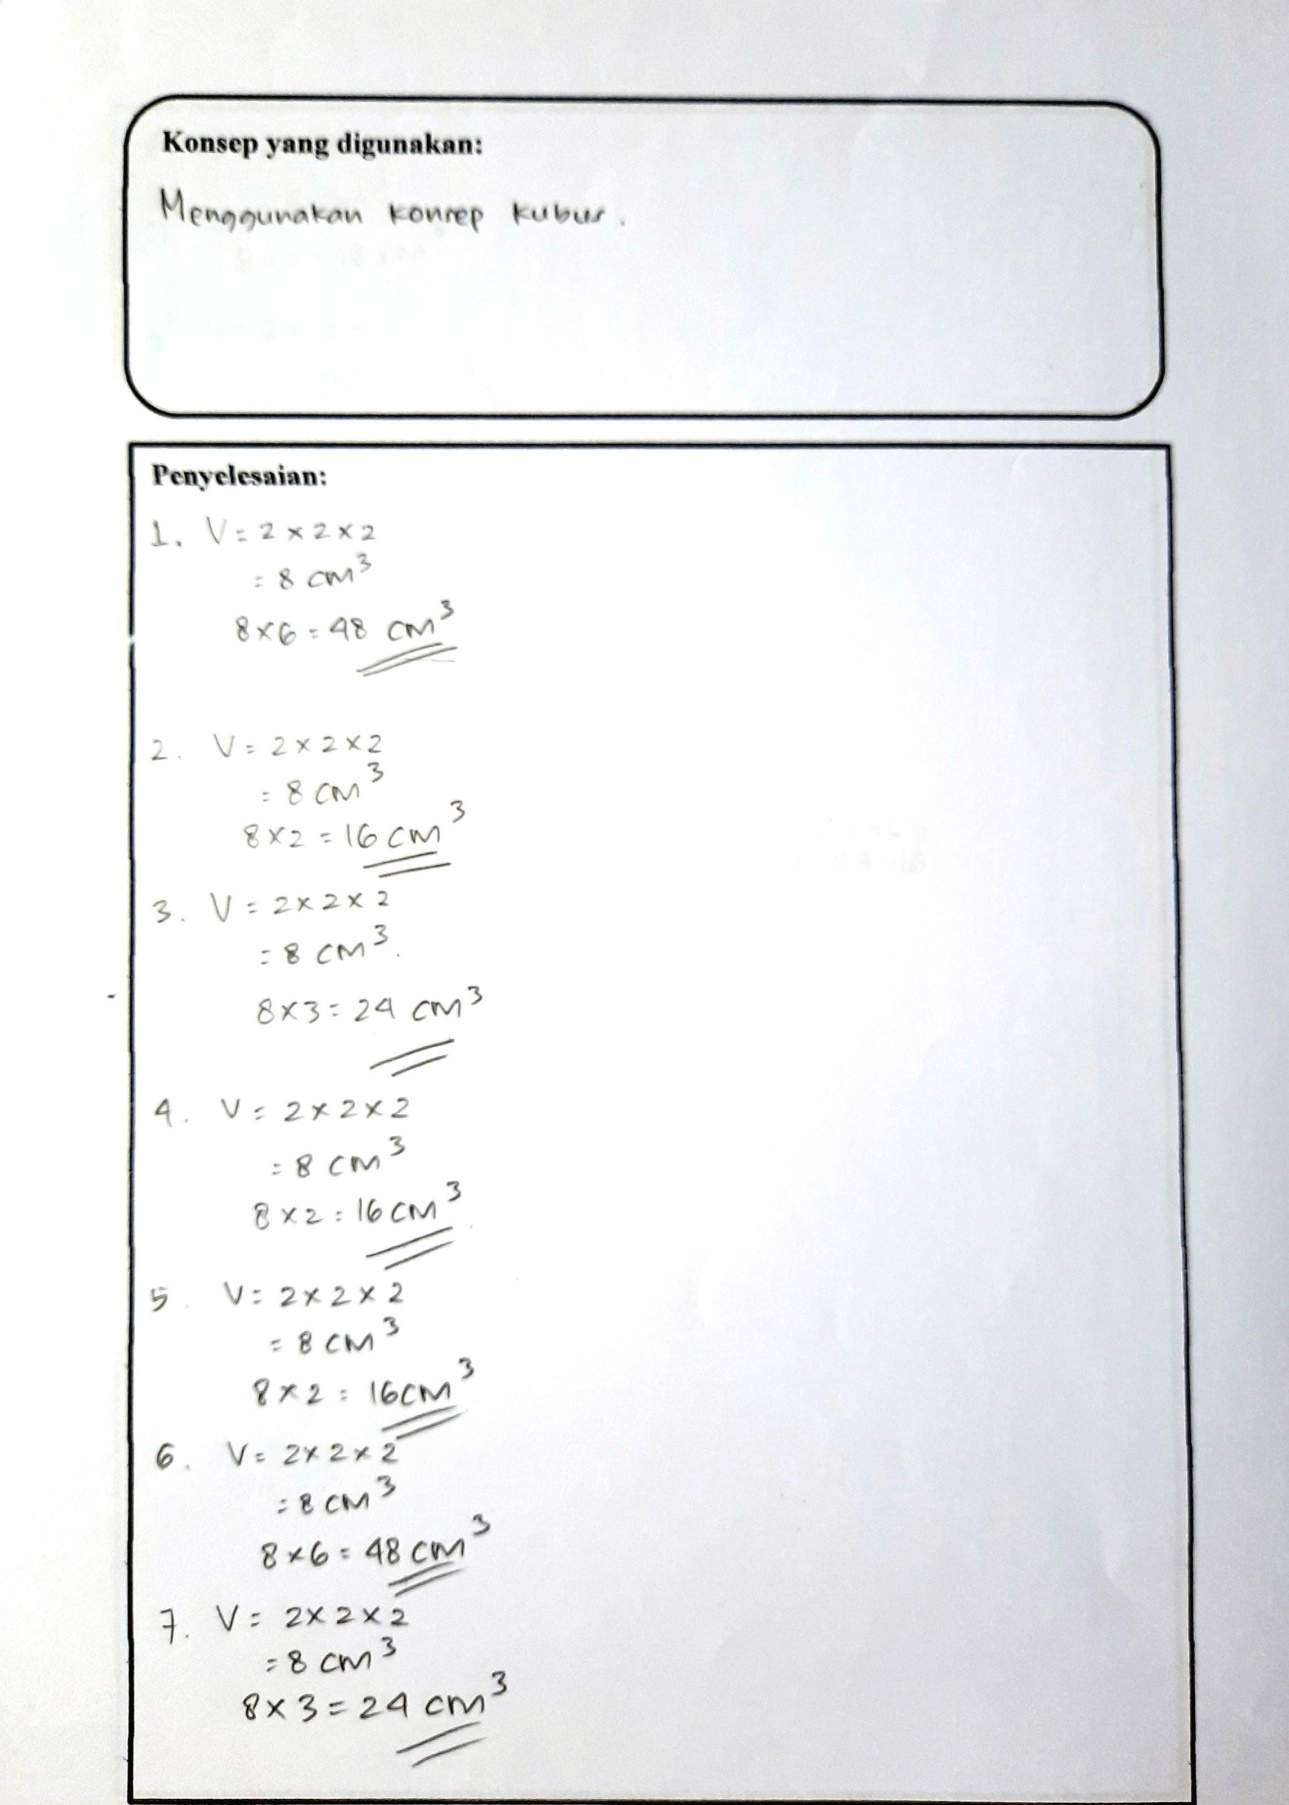 Konsep yang digunakan:
Menggunakan konsep kubus.
Penyelesaian:
1. V = 2 × 2 × 2
= 8 cm³
8×6 = 48 cm³
2. V = 2 × 2 × 2
= 8 cm³
8×2 = 16 cm³
3. V = 2 × 2 × 2
= 8 cm³.
8×3 = 24 cm³
4. V = 2 × 2 × 2
= 8 cm³
8 × 2 = 16 cm³
5. V = 2 × 2 × 2
= 8 cm³
8 × 2 = 16 cm³
6. V = 2 × 2 × 2
= 8 cm³
8 × 6 = 48 cm³
7. V = 2 × 2 × 2
= 8 cm³
8 × 3 = 24 cm³